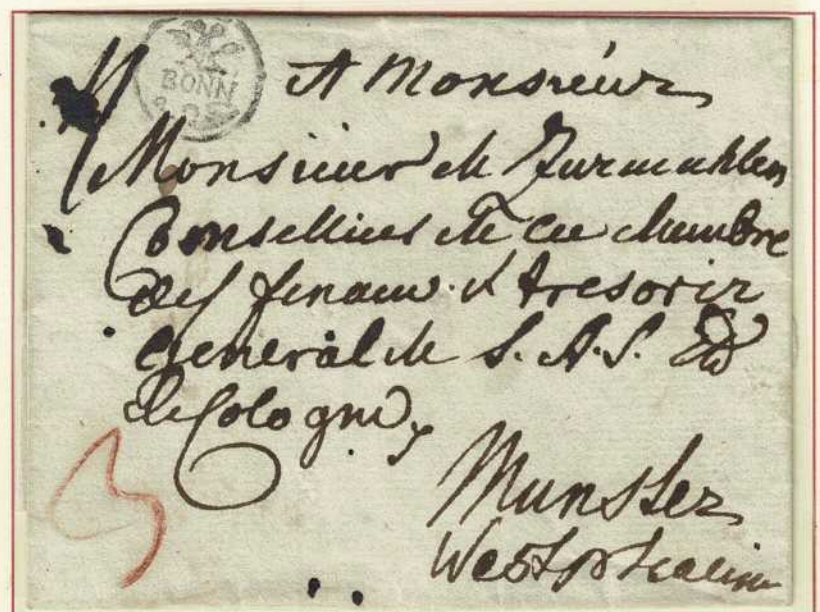 BONN
A Monsieur
Monsieur de Zurmuhlen
Conseillier de la Chambre
des finances et tresorir
General de S. A. S. Ele
de Cologne
3
Munster
Westphalie